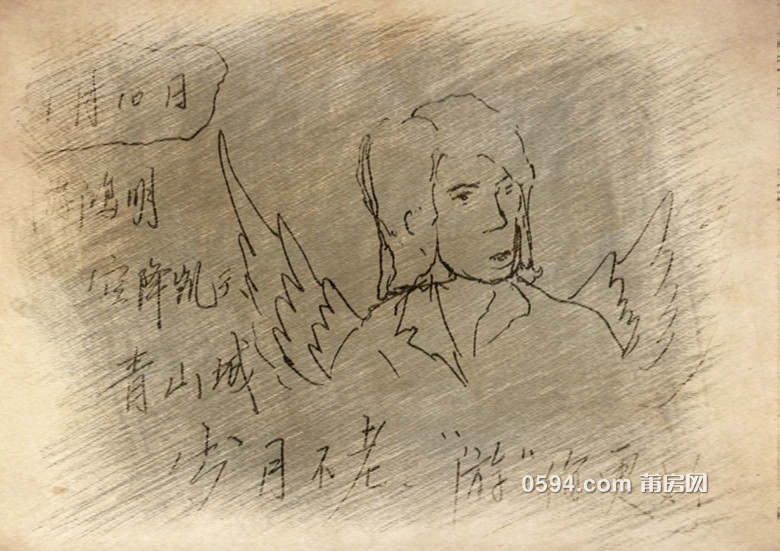 月10日
鸿明
空降凯天
青山城
岁月不老 "游"你更
0594.com 莆房网